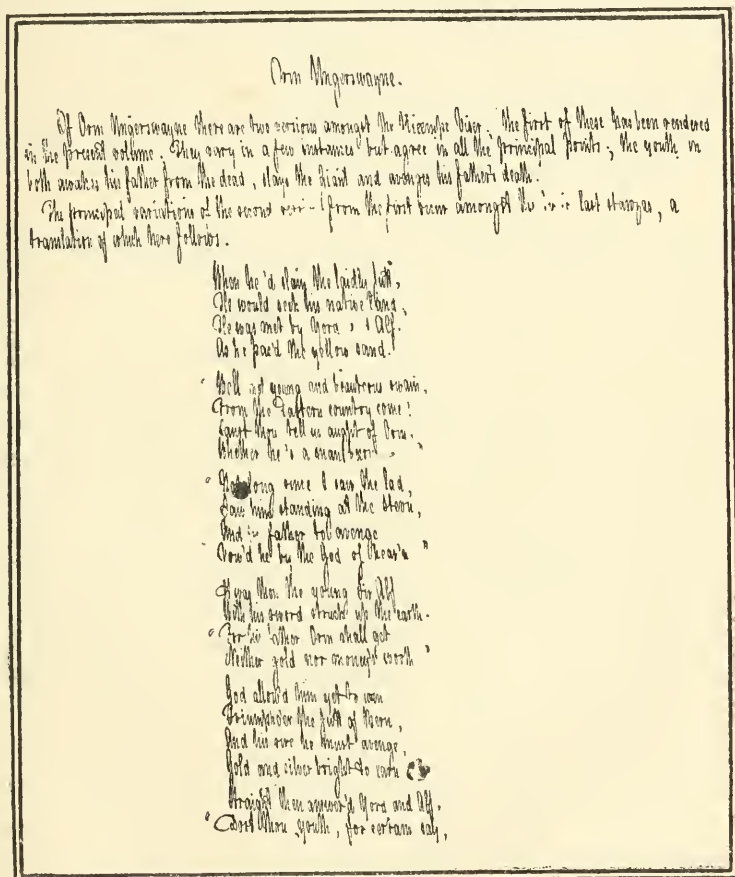 Orm Ungerswayne.
Of Orm Ungerswayne there are two versions amongst the Kiæmpe Viser. The first of these has been rendered
in the present volume. They vary in a few instances but agree in all the principal points; the youth in
both awakes his father from the dead, slays the Giant and avenges his father's death.
The principal variations of the second from the first occur amongst the last stanzas, a
translation of which here follows.
When he'd slain the laidly Jutt,
He would seek his native land;
He was met by Gora Alf.
As he pac'd the yellow sand.
" Well met young and beauteous swain,
From the Eastern country come!
Canst thou tell us aught of Orm.
Whether he is a man
" Not long since I saw the lad,
Saw him standing at the Steen,
And his father to avenge
Vow'd he by the God of Heav'n "
It was then the young Sir Alf
With his sword struck up the earth.
" For his father Orm shall get
Neither gold nor money's worth "
God allow'd him yet to win
Triumph o'er the Jutt of Bern,
And his sire he must avenge,
Gold and silver bright to earn
Straight then answer'd Gora and Alf.
" Canst thou youth, for certain say,